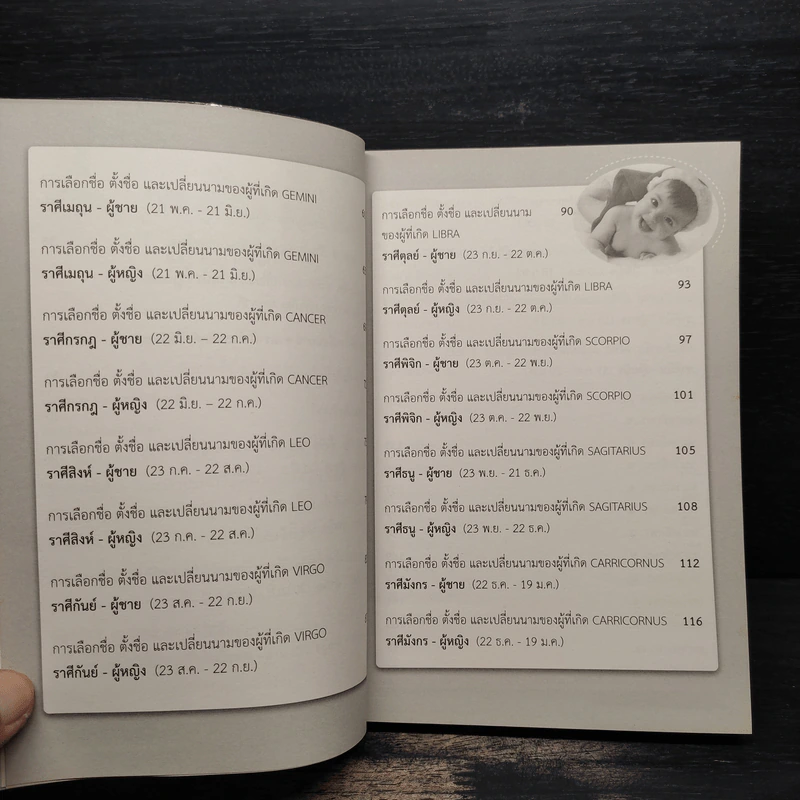 การเลือกชื่อ ตั้งชื่อ และเปลี่ยนนามของผู้ที่เกิด GEMINI
ราศีเมถุน - ผู้ชาย (21 พ.ค. - 21 มิ.ย.)
การเลือกชื่อ ตั้งชื่อ และเปลี่ยนนามของผู้ที่เกิด GEMINI
ราศีเมถุน - ผู้หญิง (21 พ.ค. - 21 มิ.ย.)
การเลือกชื่อ ตั้งชื่อ และเปลี่ยนนามของผู้ที่เกิด CANCER
ราศีกรกฎ - ผู้ชาย (22 มิ.ย. – 22 ก.ค.)
การเลือกชื่อ ตั้งชื่อ และเปลี่ยนนามของผู้ที่เกิด CANCER
ราศีกรกฎ - ผู้หญิง (22 มิ.ย. – 22 ก.ค.)
การเลือกชื่อ ตั้งชื่อ และเปลี่ยนนามของผู้ที่เกิด LEO
ราศีสิงห์ - ผู้ชาย (23 ก.ค. - 22 ส.ค.)
การเลือกชื่อ ตั้งชื่อ และเปลี่ยนนามของผู้ที่เกิด LEO
ราศีสิงห์ - ผู้หญิง (23 ก.ค. - 22 ส.ค.)
การเลือกชื่อ ตั้งชื่อ และเปลี่ยนนามของผู้ที่เกิด VIRGO
ราศีกันย์ - ผู้ชาย (23 ส.ค. - 22 ก.ย.)
การเลือกชื่อ ตั้งชื่อ และเปลี่ยนนามของผู้ที่เกิด VIRGO
ราศีกันย์ - ผู้หญิง (23 ส.ค. - 22 ก.ย.)
การเลือกชื่อ ตั้งชื่อ และเปลี่ยนนาม 90
ของผู้ที่เกิด LIBRA
ราศีตุลย์ - ผู้ชาย (23 ก.ย. - 22 ต.ค.)
การเลือกชื่อ ตั้งชื่อ และเปลี่ยนนามของผู้ที่เกิด LIBRA 93
ราศีตุลย์ - ผู้หญิง (23 ก.ย. - 22 ต.ค.)
การเลือกชื่อ ตั้งชื่อ และเปลี่ยนนามของผู้ที่เกิด SCORPIO 97
ราศีพิจิก - ผู้ชาย (23 ต.ค. - 22 พ.ย.)
การเลือกชื่อ ตั้งชื่อ และเปลี่ยนนามของผู้ที่เกิด SCORPIO 101
ราศีพิจิก - ผู้หญิง (23 ต.ค. - 22 พ.ย.)
การเลือกชื่อ ตั้งชื่อ และเปลี่ยนนามของผู้ที่เกิด SAGITARIUS 105
ราศีธนู - ผู้ชาย (23 พ.ย. - 21 ธ.ค.)
การเลือกชื่อ ตั้งชื่อ และเปลี่ยนนามของผู้ที่เกิด SAGITARIUS 108
ราศีธนู - ผู้หญิง (23 พ.ย. - 22 ธ.ค.)
การเลือกชื่อ ตั้งชื่อ และเปลี่ยนนามของผู้ที่เกิด CARRICORNUS 112
ราศีมังกร - ผู้ชาย (22 ธ.ค. - 19 ม.ค.)
การเลือกชื่อ ตั้งชื่อ และเปลี่ยนนามของผู้ที่เกิด CARRICORNUS 116
ราศีมังกร - ผู้หญิง (22 ธ.ค. - 19 ม.ค.)